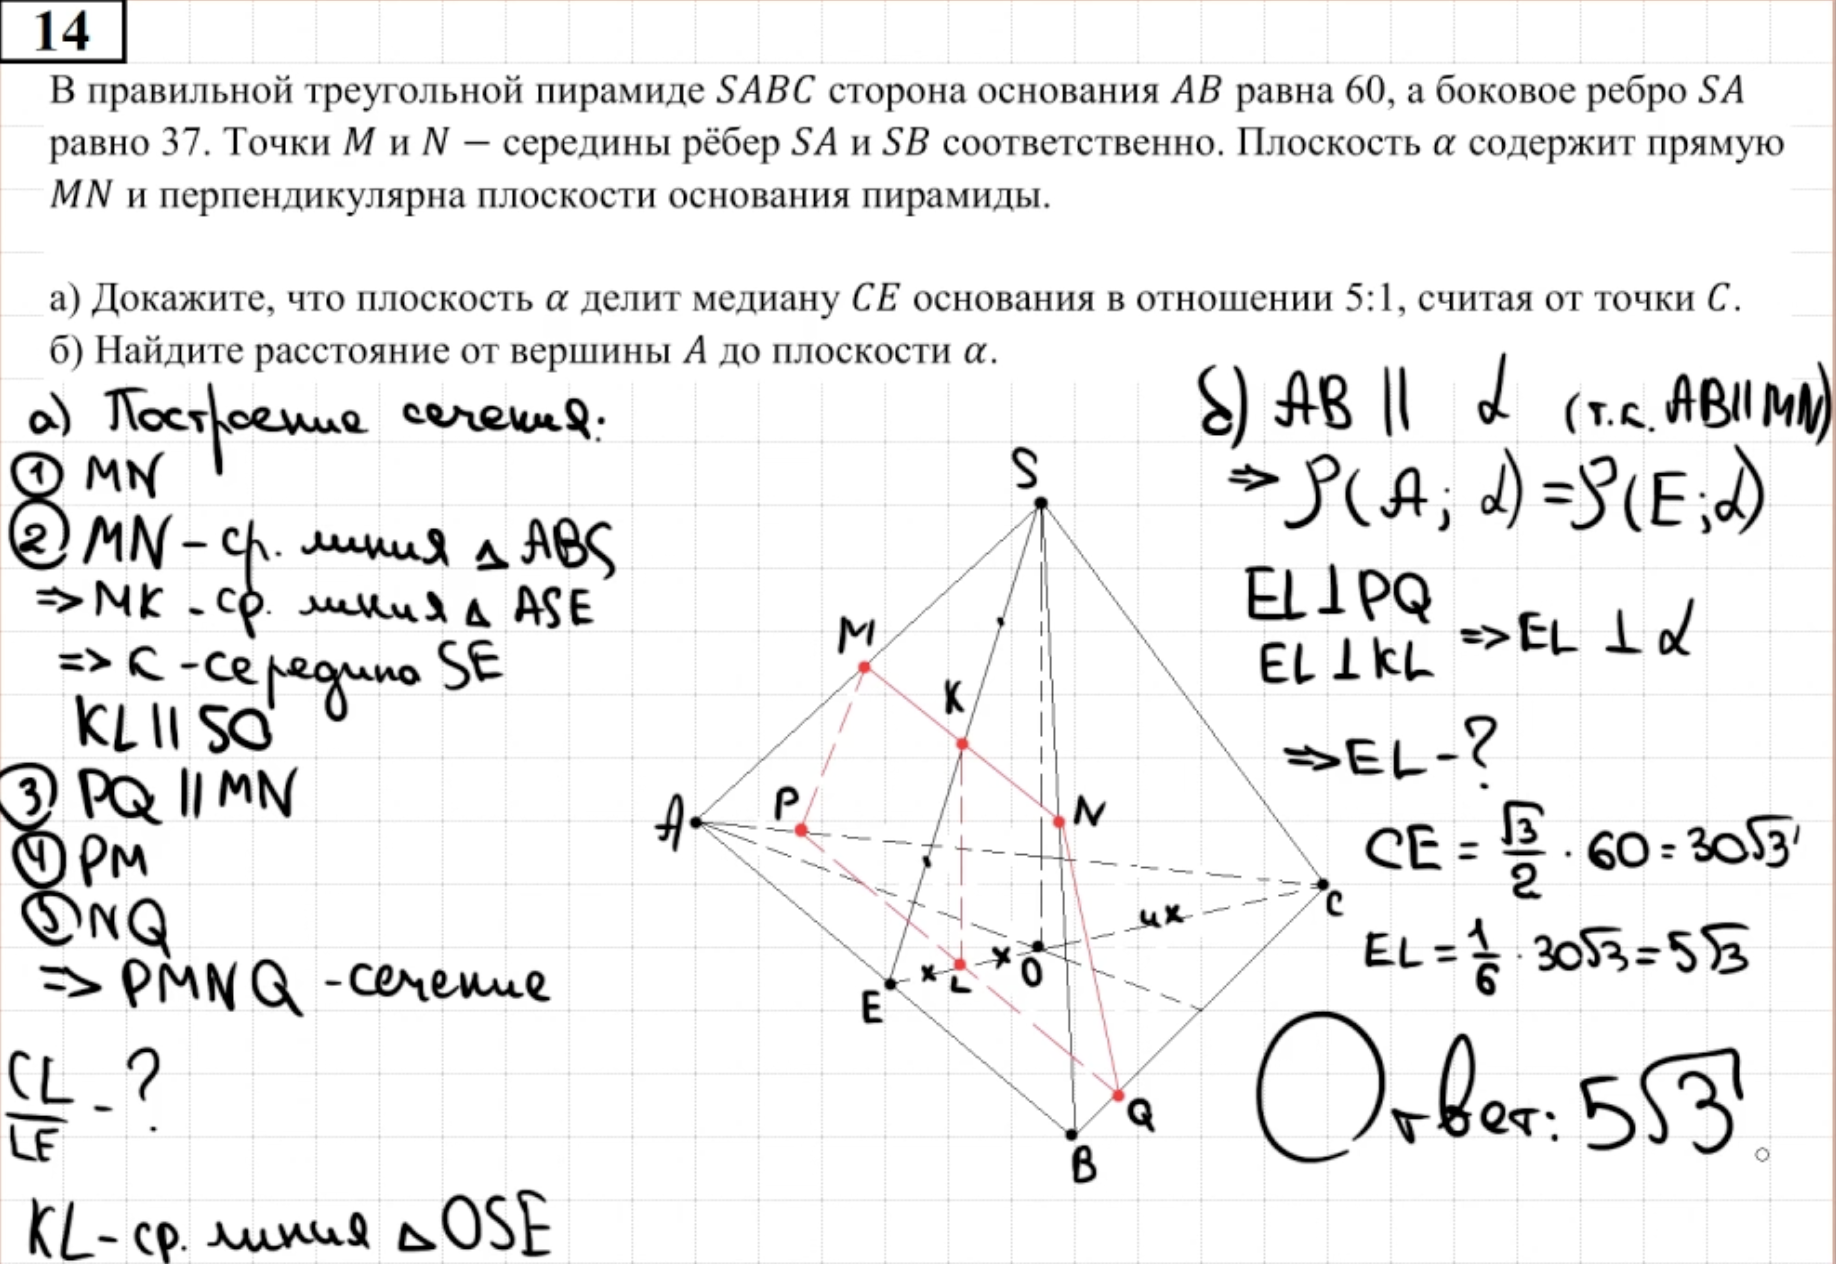 14
В правильной треугольной пирамиде SABC сторона основания AB равна 60, а боковое ребро SA
равно 37. Точки M и N — середины рёбер SA и SB соответственно. Плоскость α содержит прямую
MN и перпендикулярна плоскости основания пирамиды.
а) Докажите, что плоскость α делит медиану CE основания в отношении 5:1, считая от точки C.
б) Найдите расстояние от вершины A до плоскости α.
а) Построение сечения:
① MN
② MN - ср. линия △ ABS
=> MK - ср. линия △ ASE
=> K - середина SE
KL || SO
③ PQ || MN
④ PM
⑤ NQ
=> PMNQ - сечение
CL/LE - ?
KL - ср. линия △ OSE
S
M
K
A
P
N
C
4x
x
x
O
L
E
Q
B
б) AB || α (т.к. AB || MN)
=> ρ(A; α) = ρ(E; α)
EL ⊥ PQ
EL ⊥ KL
=> EL ⊥ α
=> EL - ?
CE = √3/2 · 60 = 30√3
EL = 1/6 · 30√3 = 5√3
Ответ: 5√3